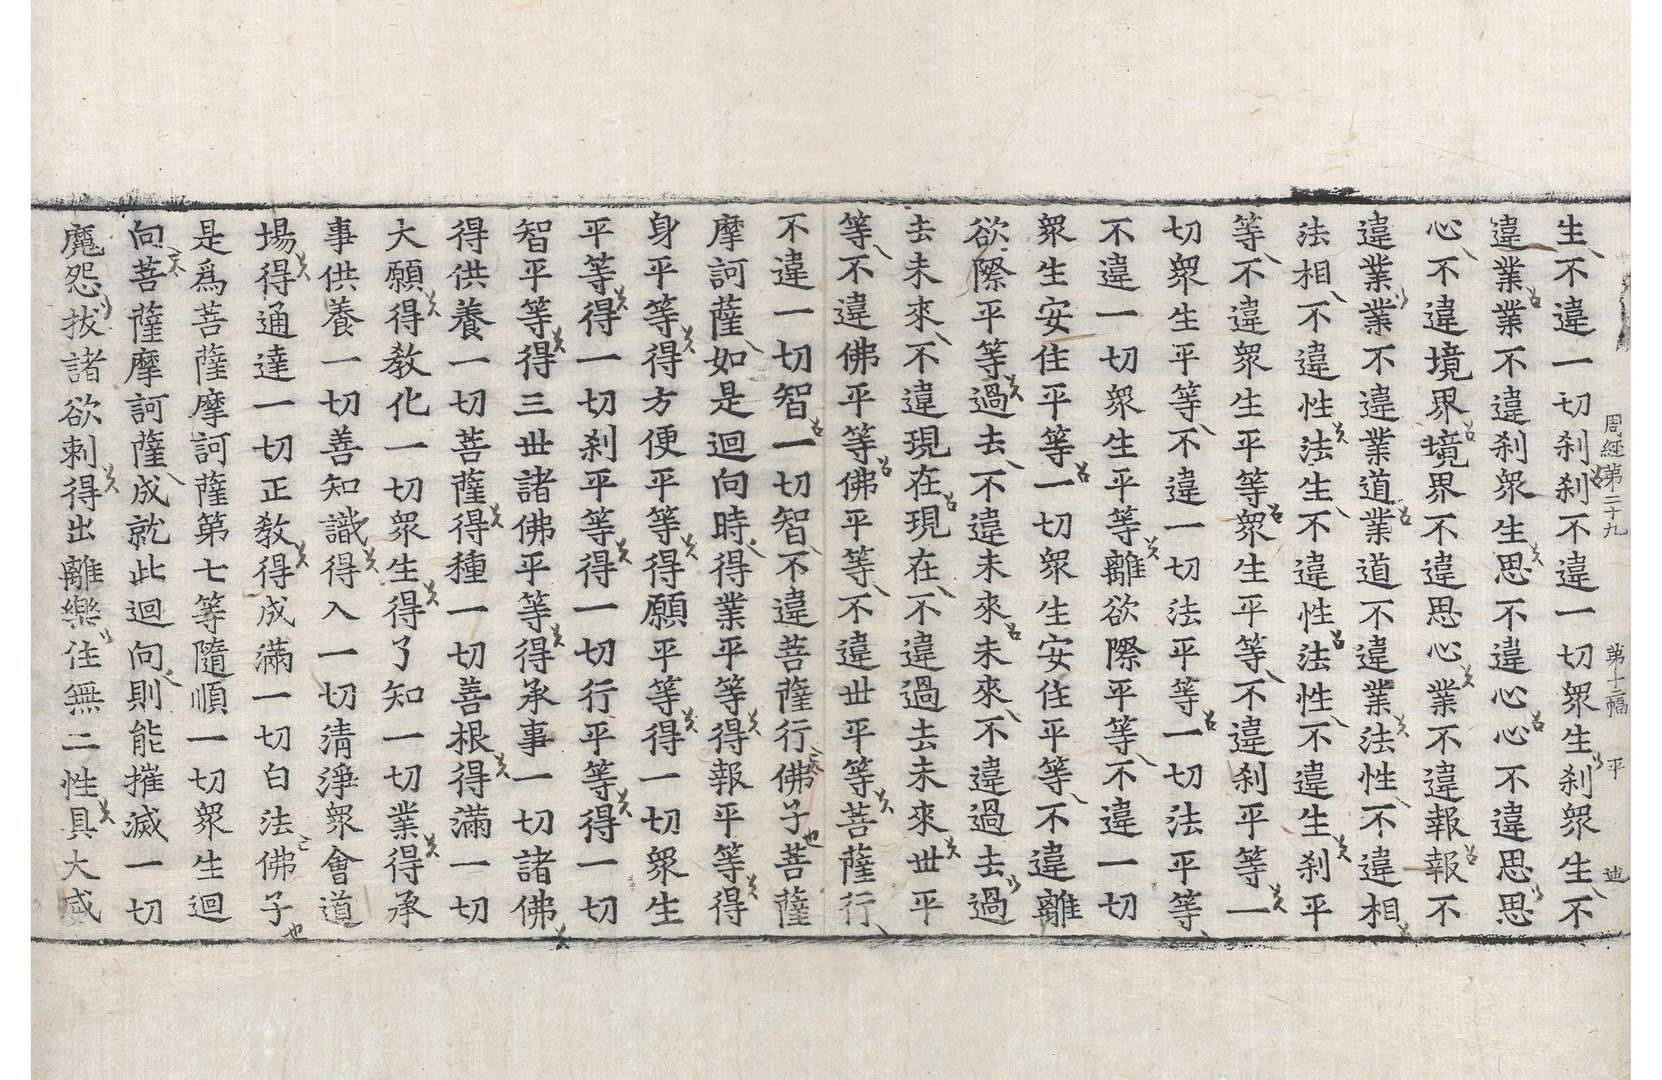 周經第二十九 第十二幅 平
生不違一切刹刹不違一切衆生刹衆生不
違業業不違刹衆生思不違心心不違思思
心不違境界境界不違思心業不違報報不
違業業不違業道業道不違業法性不違相
法相不違性法生不違性法性不違生刹平
等不違衆生平等衆生平等不違刹平等一
切衆生平等不違一切法平等一切法平等
不違一切衆生平等離欲際平等不違一切
衆生安住平等一切衆生安住平等不違離
欲際平等過去不違未來未來不違過去過
去未來不違現在現在不違過去未來世平
等不違佛平等佛平等不違世平等菩薩行
不違一切智一切智不違菩薩行佛子菩薩
摩訶薩如是迴向時得業平等得報平等得
身平等得方便平等得願平等得一切衆生
平等得一切刹平等得一切行平等得一切
智平等得三世諸佛平等得承事一切諸佛
得供養一切菩薩得種一切善根得滿一切
大願得教化一切衆生得了知一切業得承
事供養一切善知識得入一切清淨衆會道
場得通達一切正教得成滿一切白法佛子
是爲菩薩摩訶薩第七等隨順一切衆生迴
向菩薩摩訶薩成就此迴向則能摧滅一切
魔怨拔諸欲刺得出離樂住無二性具大威